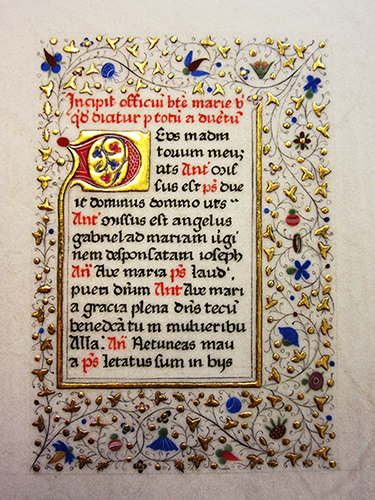 Incipit officiū bte marie v
qd dicatur p totū adūetū
Deus in adiu
toruum meu;
uts Ant Miss
sus est ps due
it dominus dommo uts
Ant Missus est angelus
gabriel ad mariam ūgi
nem desponsatam ioseph
Añ Aue maria ps laud.
pueri dnūm Ant Aue mari
a gracia plena dñs tecū
benedcā tu in mulieribu
Alla: Añ Netuneas mau
a ps letatus sum in hijs